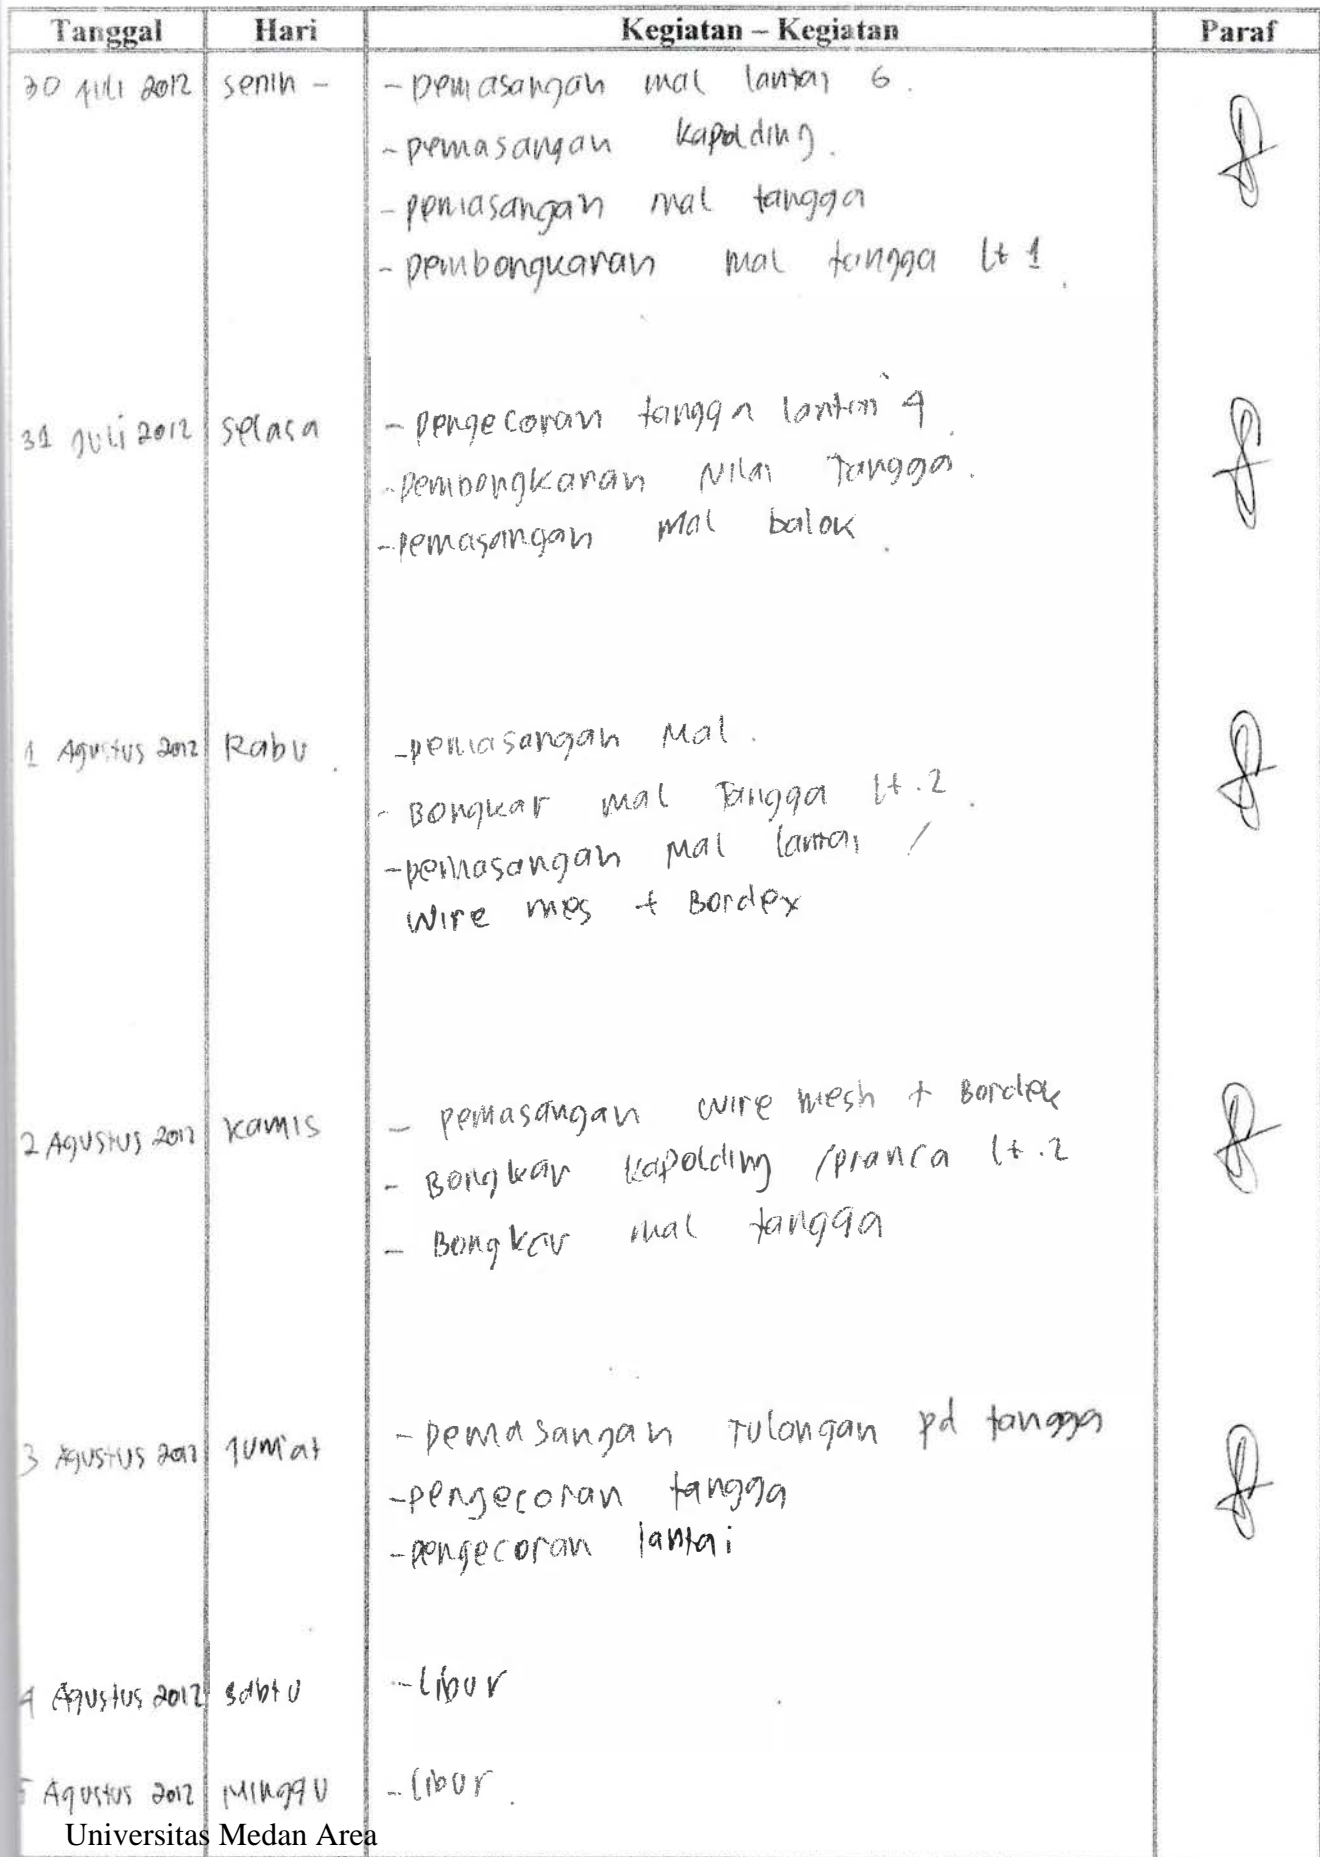 Tanggal Hari Kegiatan – Kegiatan Paraf
30 Juli 2012 senin - - pemasangan mal lantai 6.
- pemasangan kapolding.
- pemasangan mal tangga
- pembongkaran mal tangga lt 1.
31 Juli 2012 selasa - pengecoran tangga lantai 4.
- pembongkaran Tangga.
- pemasangan Mal balok.
1 Agustus 2012 Rabu. - pemasangan Mal.
- Bongkar mal Tangga lt.2.
- pemasangan Mal lantai /
wire mes + Bordex
2 Agustus 2012 kamis - pemasangan wire mesh + Bordek
- Bongkar kapolding /pranca lt.2
- Bongkar mal tangga
3 Agustus 2012 Jum'at - pemasangan Tulangan pd tangga
- pengecoran tangga
- pengecoran lantai
4 Agustus 2012 sabtu - libur
5 Agustus 2012 Minggu - libur.
Universitas Medan Area